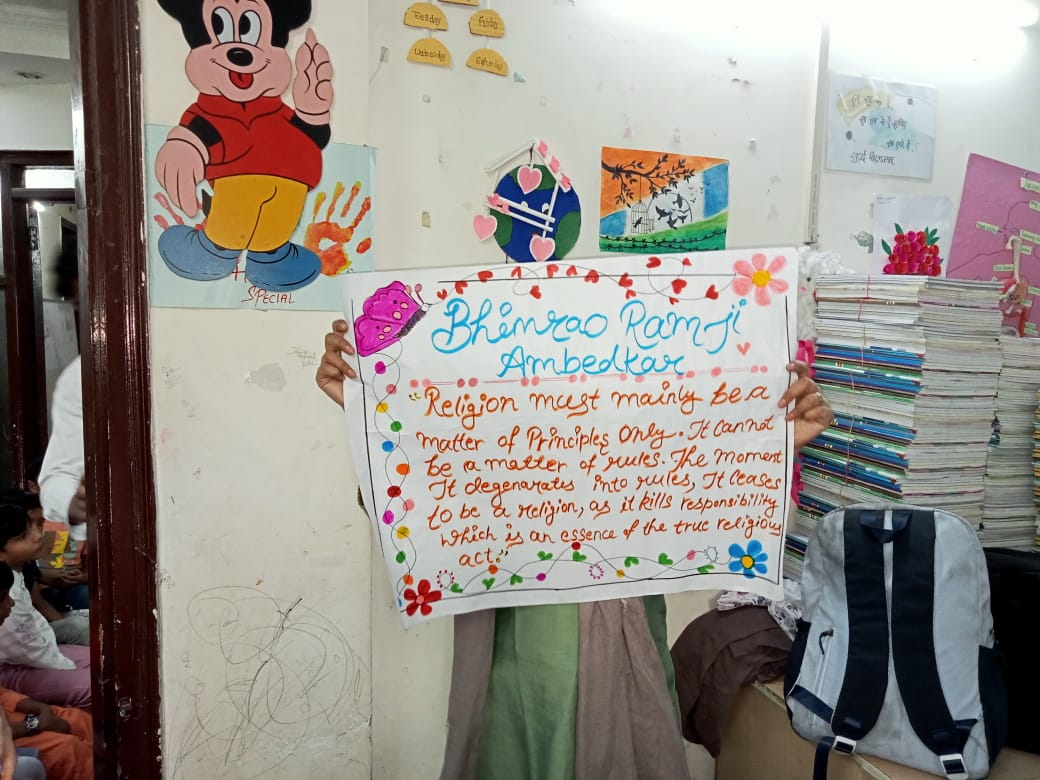 Tuesday
Friday
Wednesday
Saturday
SPECIAL
Bhimrao Ramji
Ambedkar
"Religion must mainly be a
matter of Principles Only. It Cannot
be a matter of rules. The moment
It degenarates into rules, It Ceases
to be a religion, as it kills responsibility
which is an essence of the true religious
act."